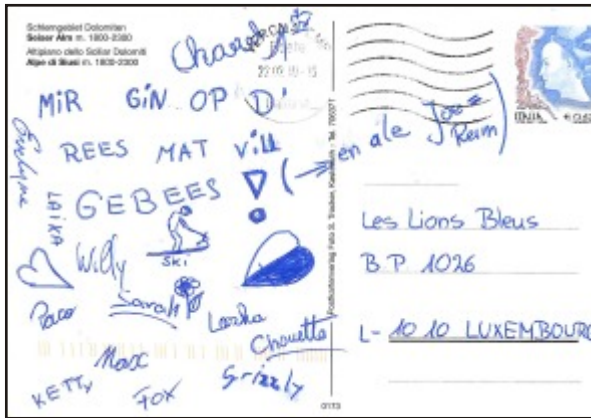 Schlerngebiet Dolomiten
Seiser Alm m. 1800-2300
Altipiano dello Sciliar Dolomiti
Alpe di Siusi m. 1800-2300
MIR GIN OP D'
REES MAT Vill
GEBEES
(→ en ale
Reim)
Evelyne
LAIKA
Willy
SKI
Paco
Sarah
Chouette
Max
Grizzly
KETTY
FOX
ITALIA €0,62
Les Lions Bleus
B.P. 1026
L-1010 LUXEMBOURG
0173